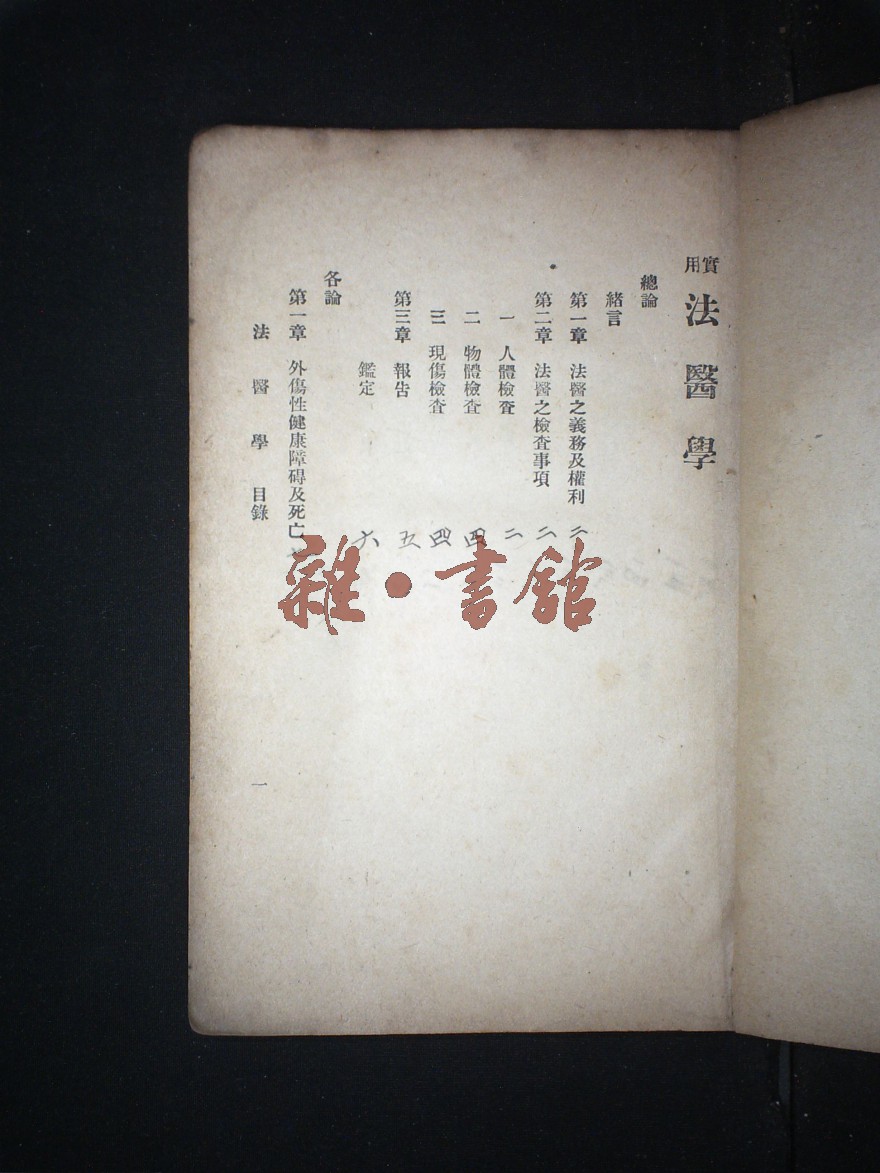 實用法醫學
總論
緒言
第一章 法醫之義務及權利 二
第二章 法醫之檢查事項 二
一 人體檢查 二
二 物體檢查 四
三 現傷檢查 四
第三章 報告 五
鑑定 六
各論
第一章 外傷性健康障碍及死亡
法醫學 目錄 一
雜·書館